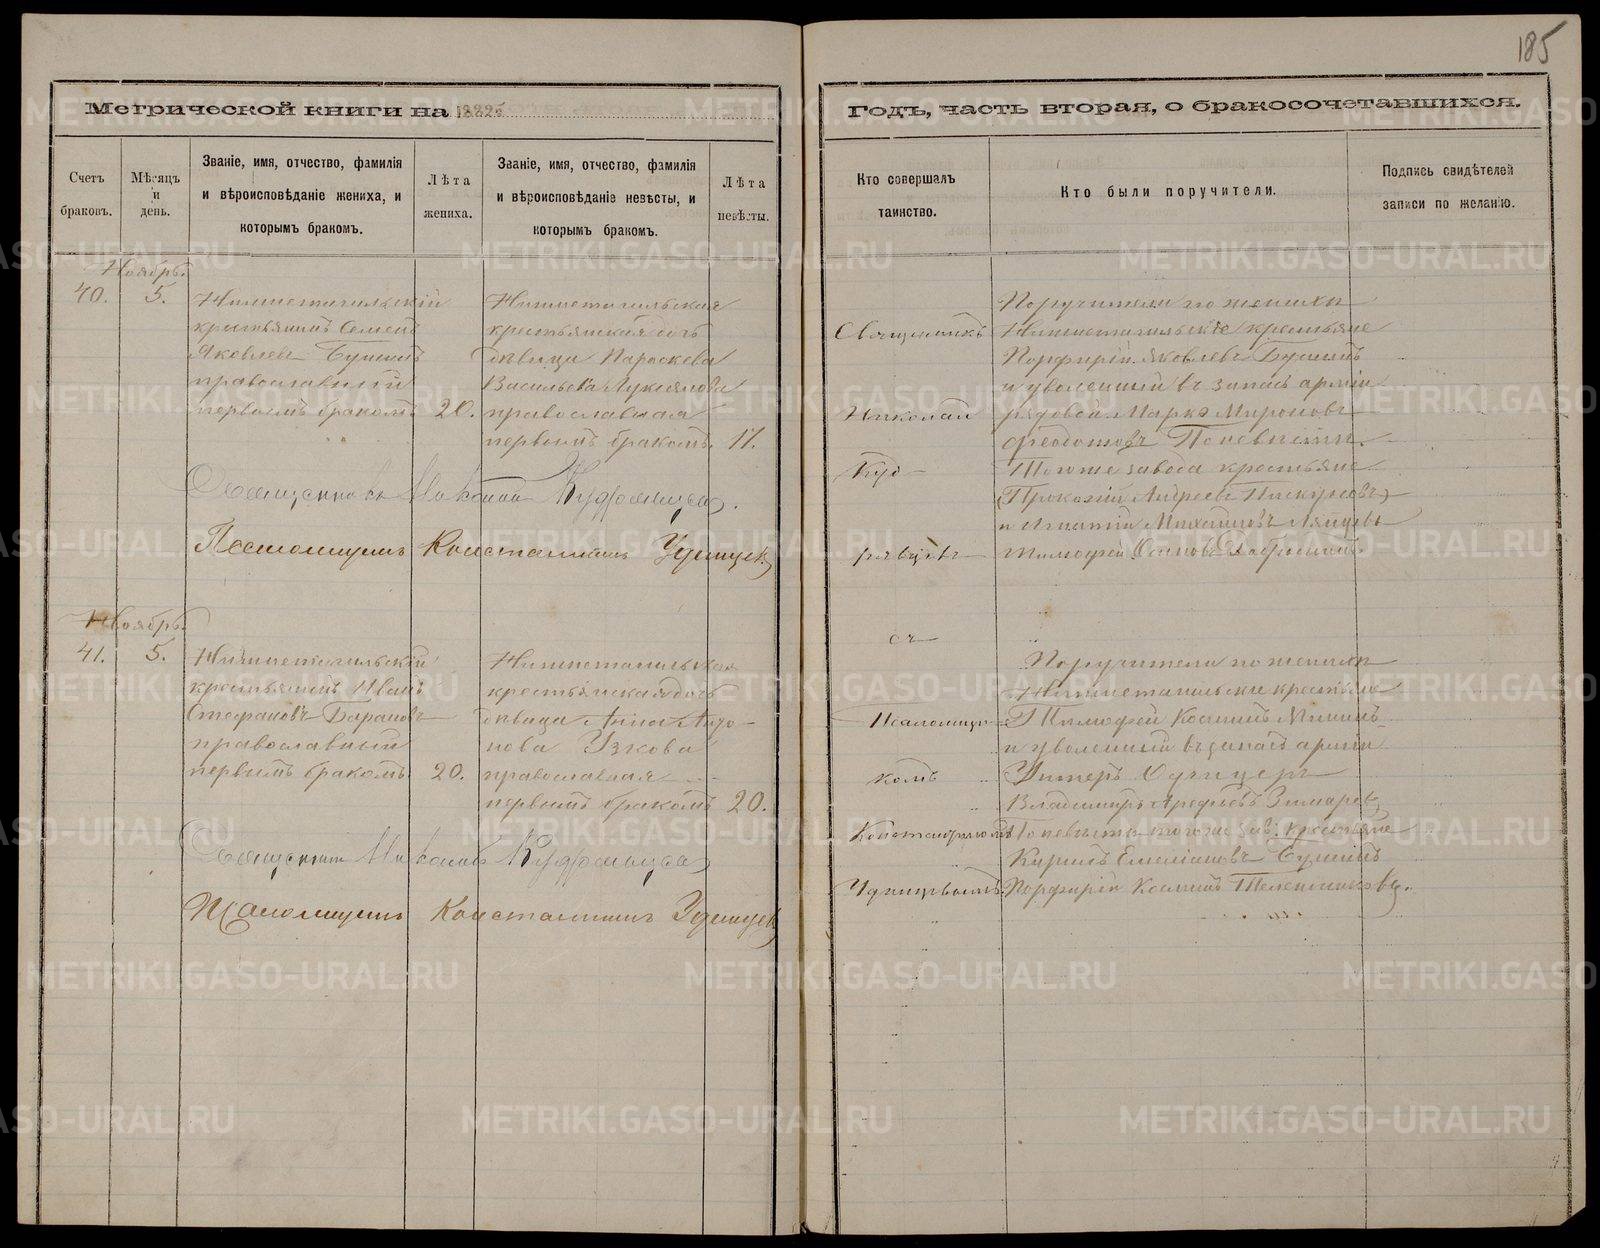 185
Метрической книги на 1886
Годъ, часть вторая, о бракосочетавшихся.
Счетъ браковъ.
Мѣсяцъ и день.
Званіе, имя, отчество, фамилія и вѣроисповѣданіе жениха, и которымъ бракомъ.
Лѣта жениха.
Званіе, имя, отчество, фамилія и вѣроисповѣданіе невѣсты, и которымъ бракомъ.
Лѣта невѣсты.
Кто совершалъ таинство.
Кто были поручители.
Подпись свидѣтелей записи по желанію.
Ноябрь.
40.
5.
Нижнетагильскій
крестьянинъ Семенъ
Яковлевъ Бушинъ
православный
первымъ бракомъ
20.
Нижнетагильская
крестьянская дочь
дѣвица Параскева
Васильева Лукоянова
православная
первымъ бракомъ.
17.
Священникъ Николай Кудрявцевъ.
Псаломщикъ Константинъ Удинцевъ
Ноябрь.
41.
5.
Нижнетагильскій
крестьянинъ Иванъ
Стефановъ Барановъ
православный
первымъ бракомъ
20.
Нижнетагильская
крестьянская дочь
дѣвица Анна
Узкова
православная
первымъ бракомъ
20.
Священникъ Николай Кудрявцевъ
Псаломщикъ Константинъ Удинцевъ
Священникъ
Николай
Куд-
рявцевъ
съ
Псаломщи-
комъ
Константиномъ
Удинцевымъ.
Поручители по женихѣ
Нижнетагильскіе крестьяне
Порфирій Яковлевъ Бушинъ
и уволенный въ запасъ арміи
рядовой Марко Мироновъ
Федотовъ По невѣстѣ.
Тогоже завода крестьяне
Прокопій Андреевъ Пискуновъ
и Игнатій Михайловъ
Тимофей Осиповъ
Поручители по женихѣ
Нижнетагильскіе крестьяне
Тимофей Козминъ
и уволенный въ запасъ арміи
Унтеръ Офицеръ
Владиміръ Арефьевъ
По невѣстѣ того же зав. крестьяне
Кирилъ Емеліановъ Бушинъ
Порфирій Козминъ Телешниковъ.
METRIKI.GASO-URAL.RU